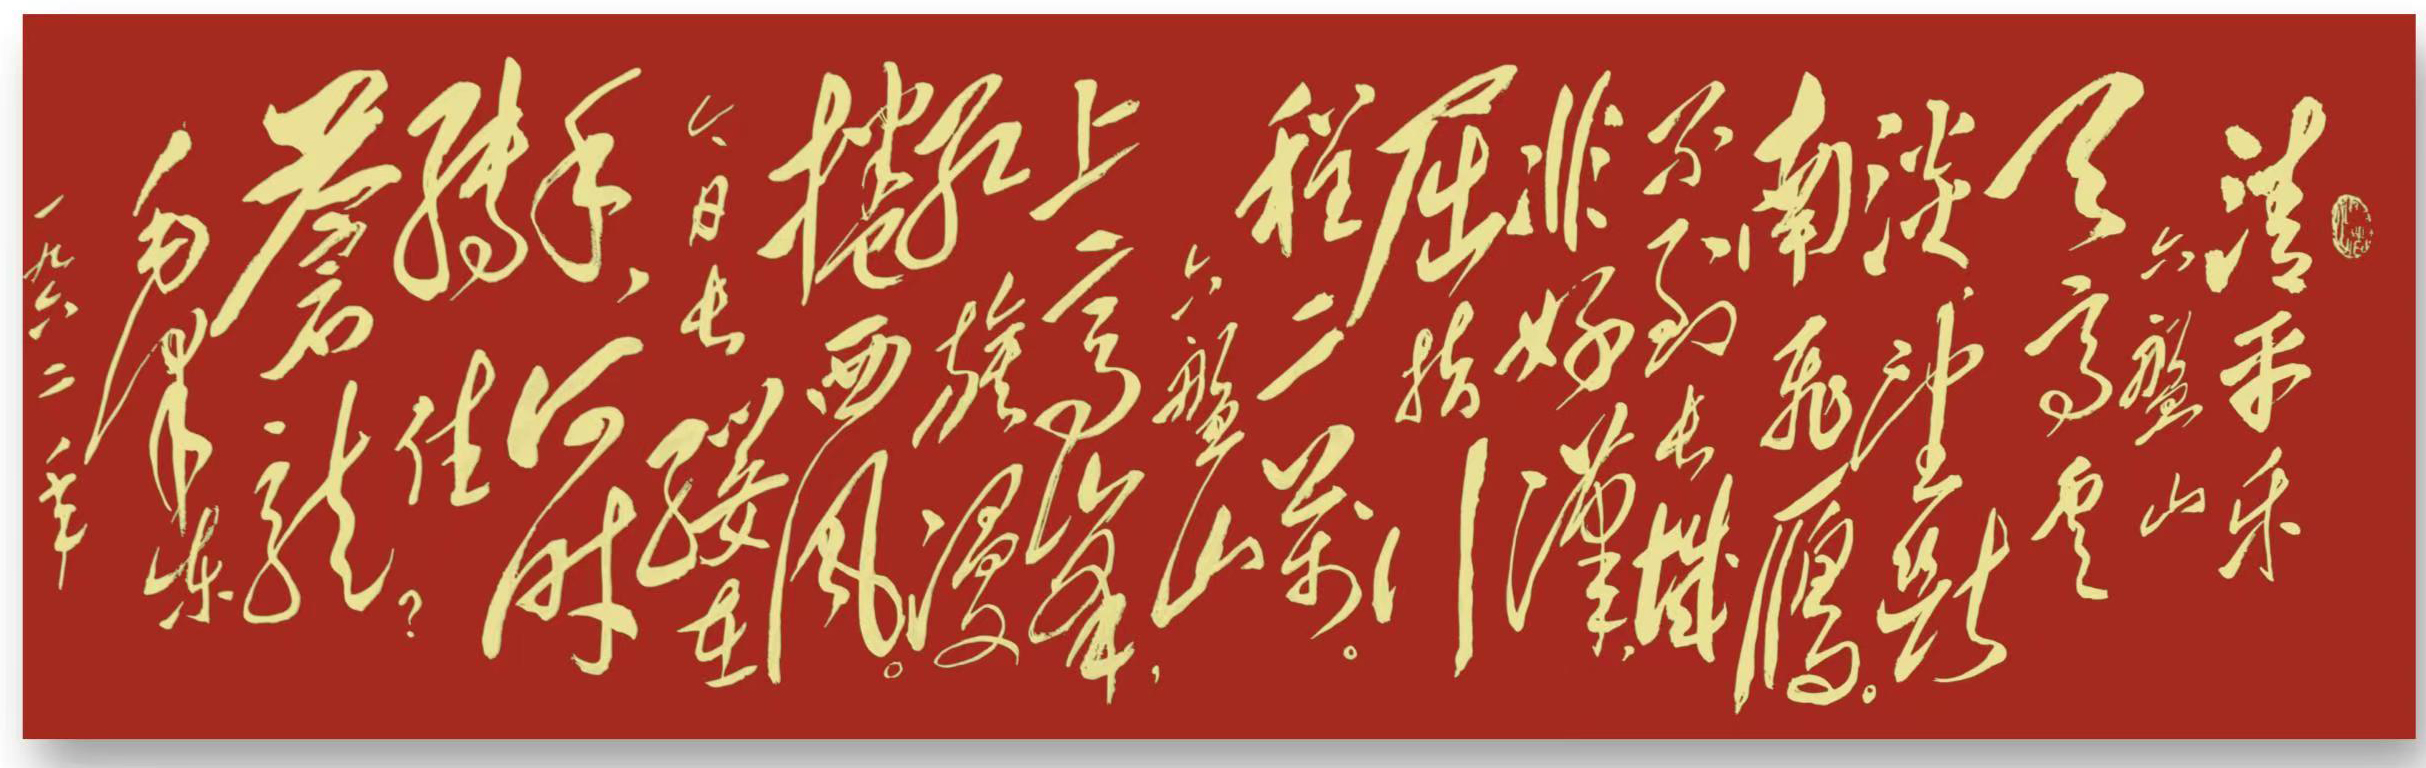 清平乐
六盘山
天高云
淡望断
南飞雁。
不到长城
非好漢,
屈指行
程二萬。
六盘山
上高峯,
红旗漫
捲西风。
今日长
缨在
手,何时
缚住
苍龙?
毛泽东
一九六二年